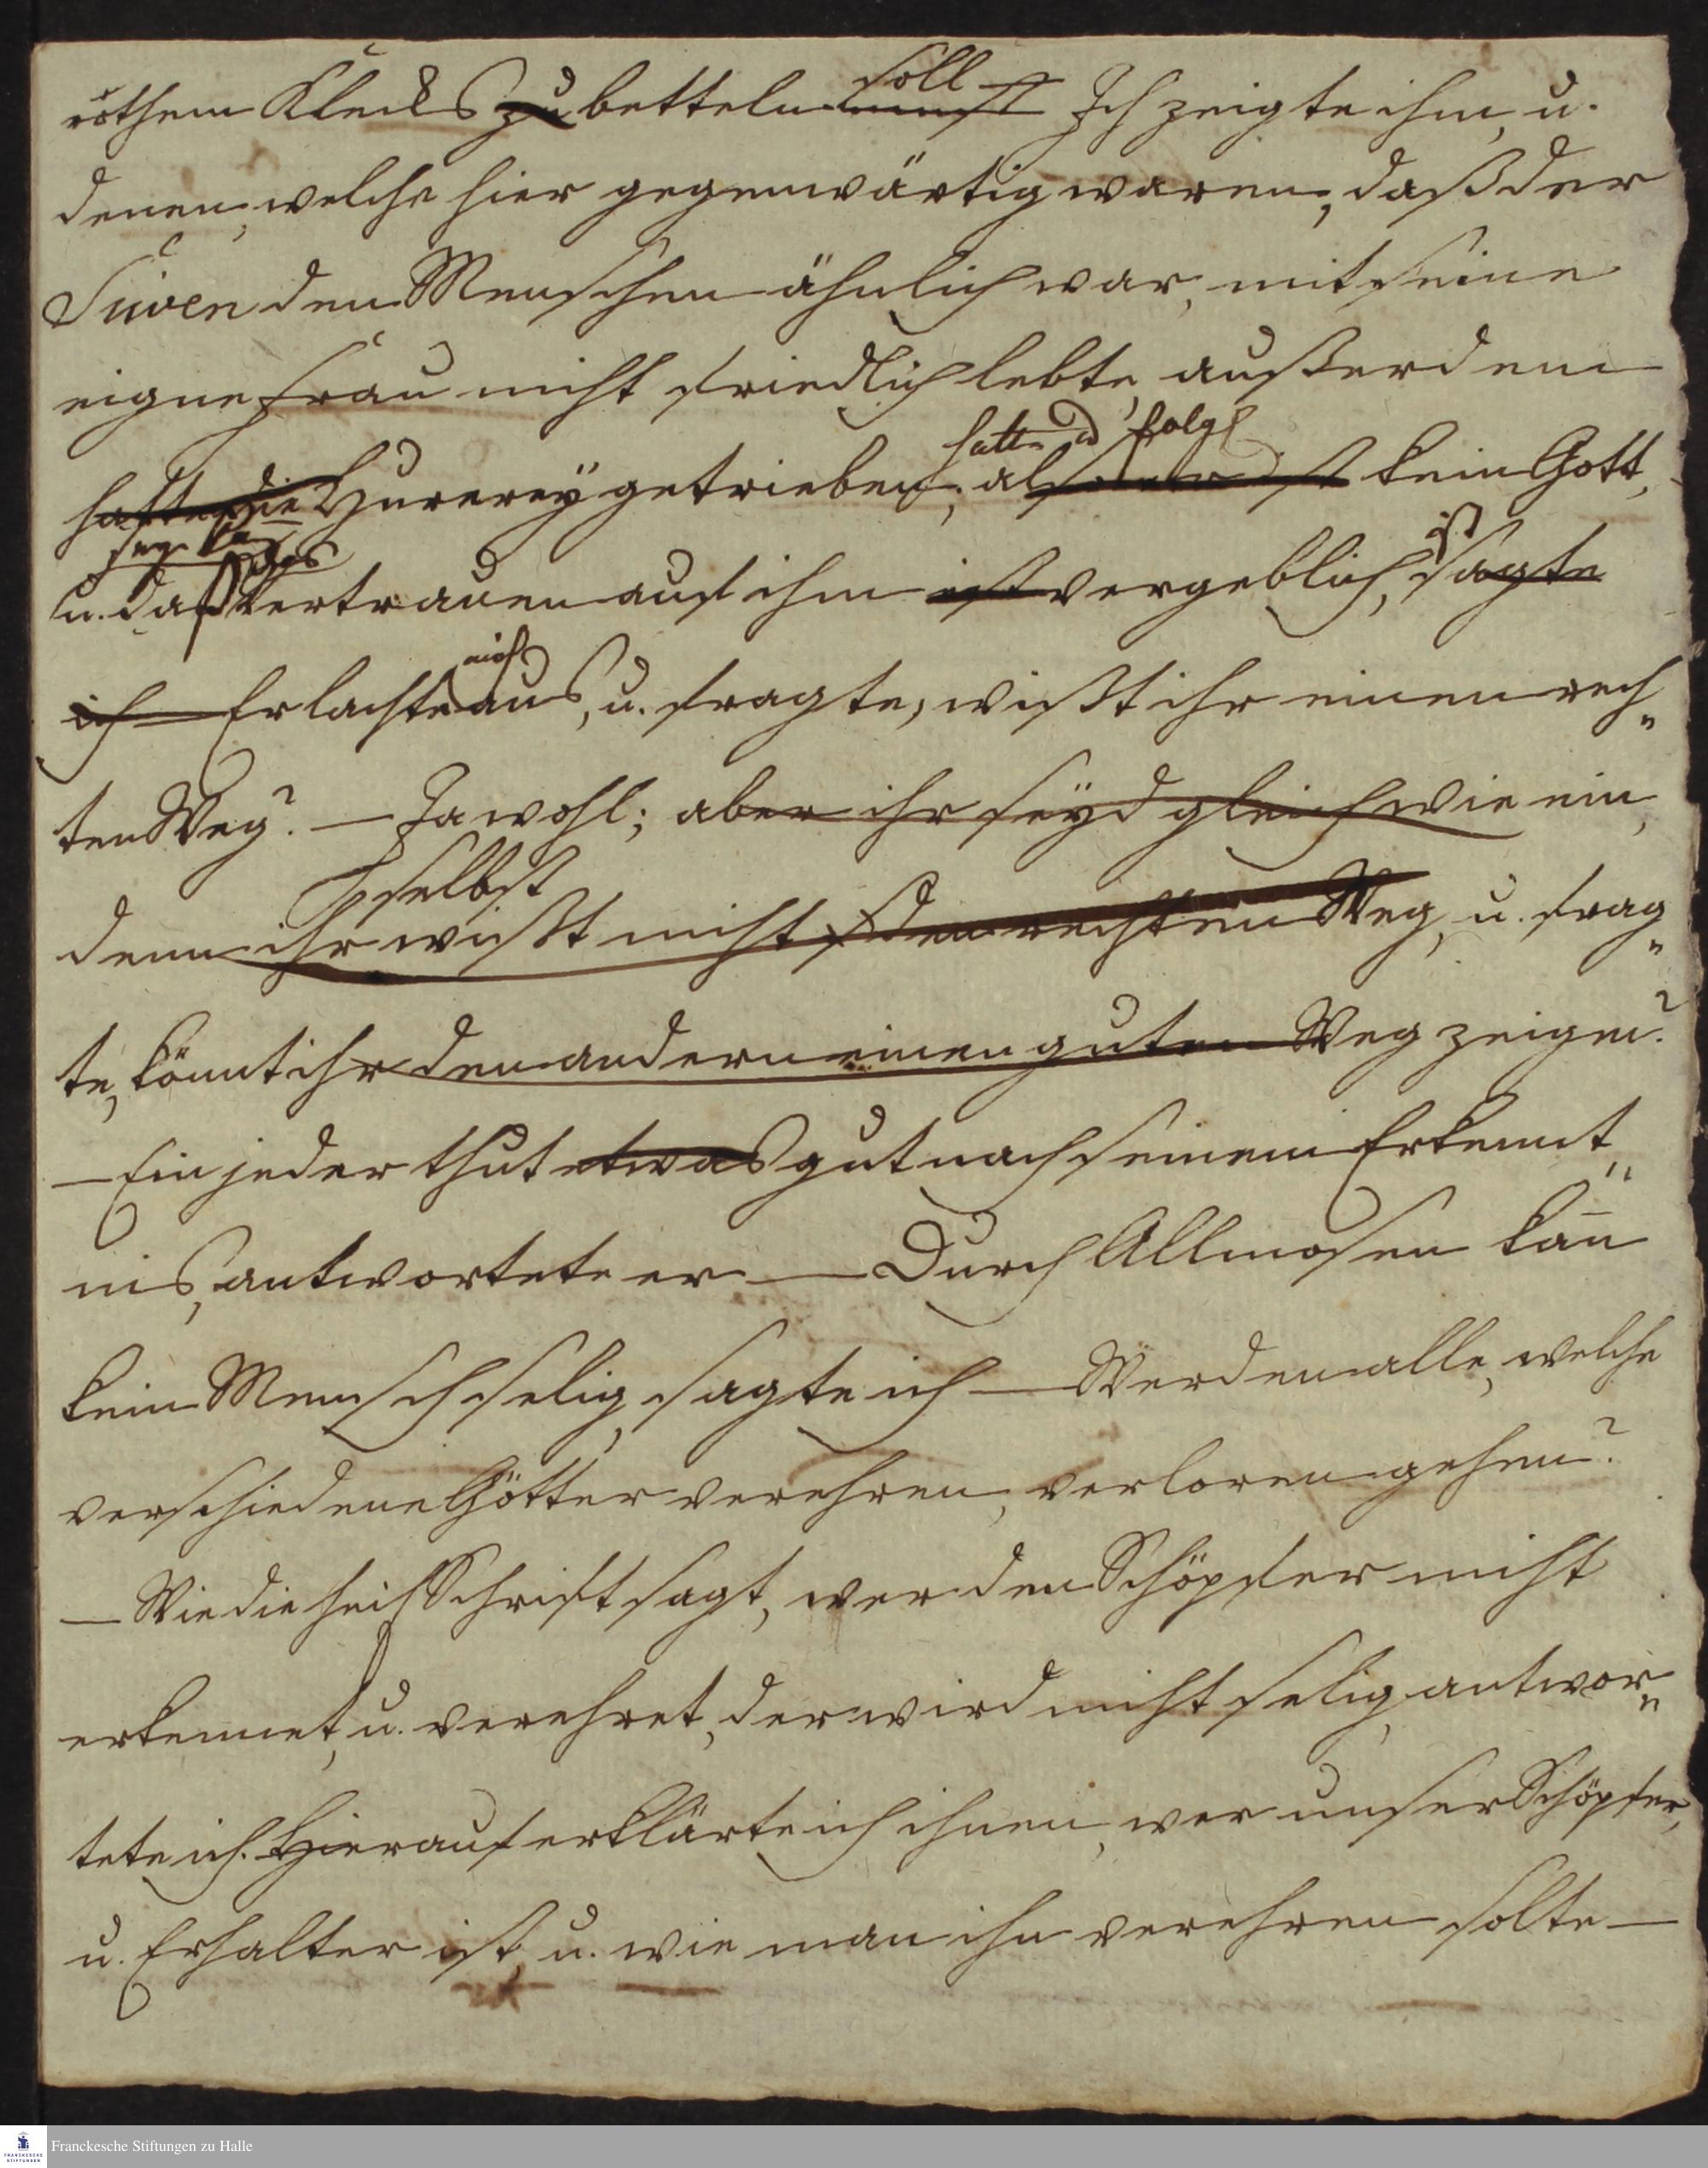 soll
rothem Kleids zu betteln muß Ich zeigte ihm, u.
denen, welche hier gegenwärtig waren, daß der
Siven den Menschen ähnlich war, mit seine
eigne Frau nicht friedlich lebte, außerdem
hatte u folgl
hatte die Hurerey getrieben, also er ist kein Gott,
das ist
u. daß Vertrauen auf ihm ist vergeblich, sagte
mich
ich – Er lachte aus, u. fragte, wißt ihr einen rech„
ten Weg? – Ja wohl; aber ihr seyd gleich wie ein,
selbst
denn ihr wißt nicht den rechten Weg, u. frag„
te, könnt ihr den andern einen guten Weg zeigen?
– Ein jeder thut etwas gut nach seinem Erkennt„
nis, antwortete er – Durch Allmosen kan̄
kein Mensch selig, sagte ich – Werden alle, welche
verschiedene Götter verehren, verloren gehen?
– Wie die heil Schrift sagt, wer den Schöpfer nicht
erkennet, u. verehret, der wird nicht selig, antwor„
tete ich. Hierauf erklärte ich ihnen, wer unser Schöpfer,
u. Erhalter ist, u. wie man ihn verehren solte –
Franckesche Stiftungen zu Halle
FRANCKESCHE
STIFTUNGEN